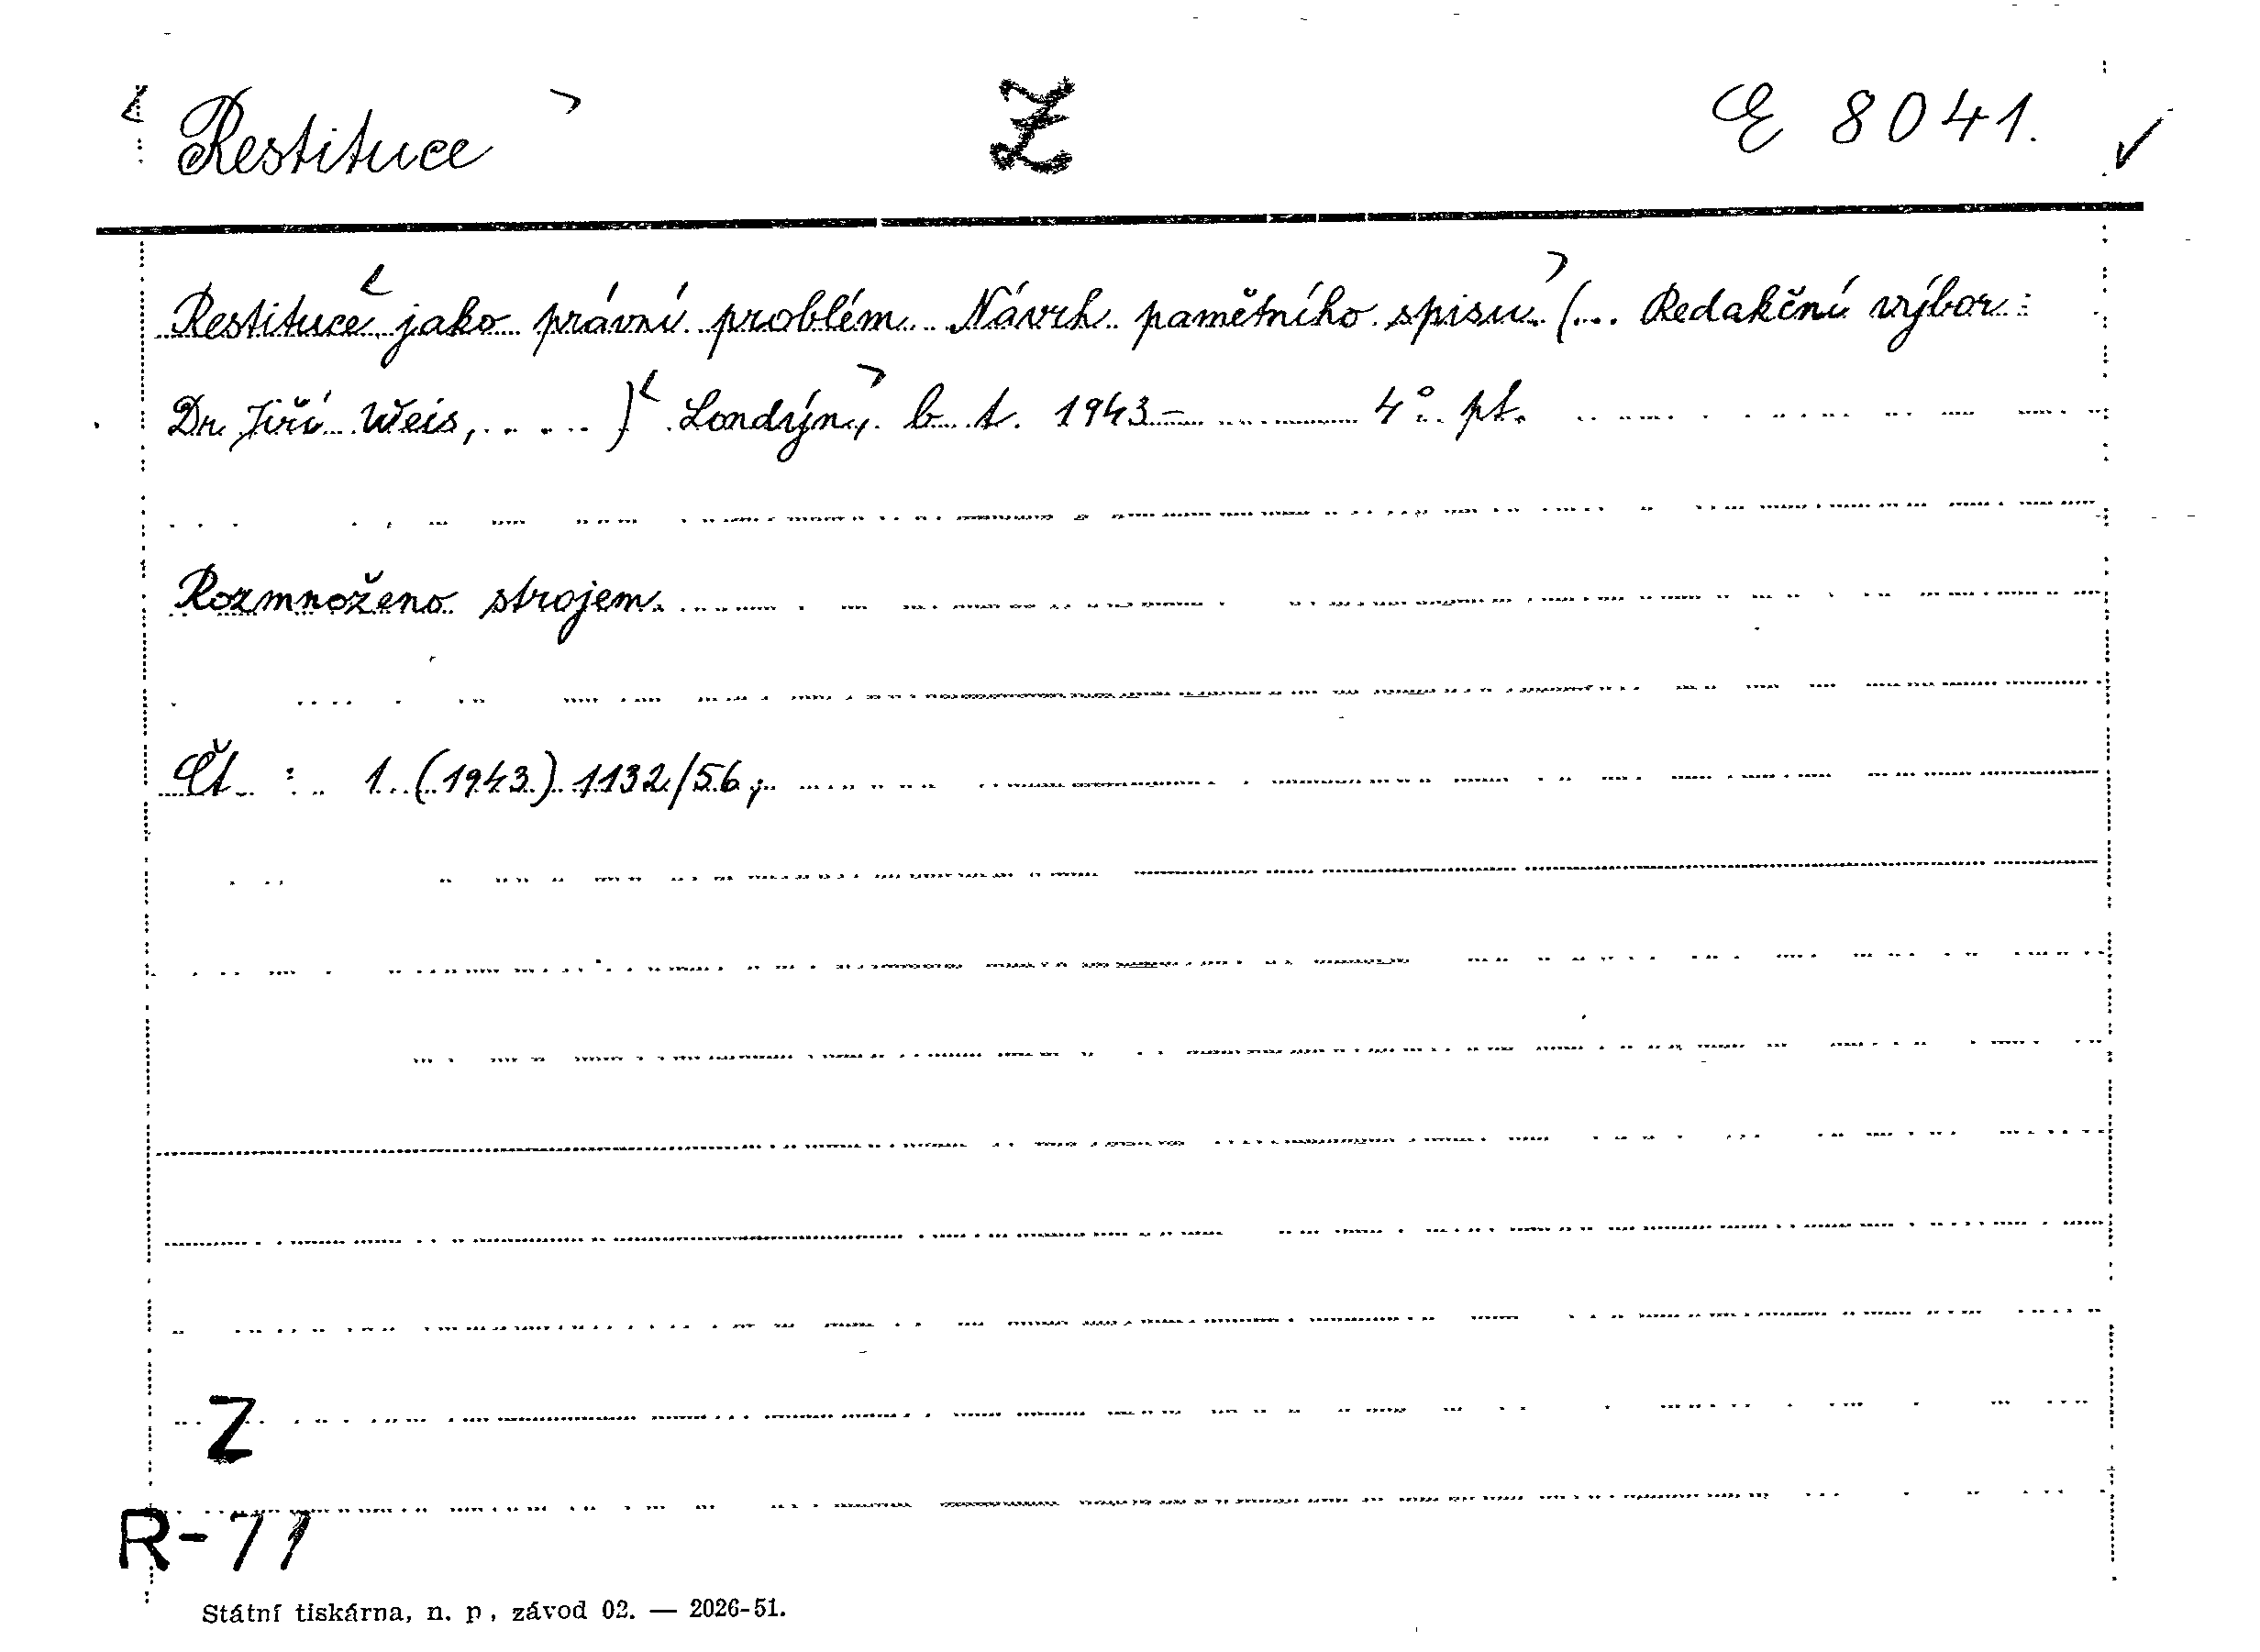 Restituce Z E 8041.
Restituce jako právní problém. Návrh pamětního spisu. (... Redakční výbor:
Dr. Jiří Weis, ....) Londýn, b. t. 1943- 4°. pt.
Rozmnoženo strojem.
Čt. : 1. (1943) 1132/56;
Z
R-71
Státní tiskárna, n. p., závod 02. — 2026-51.